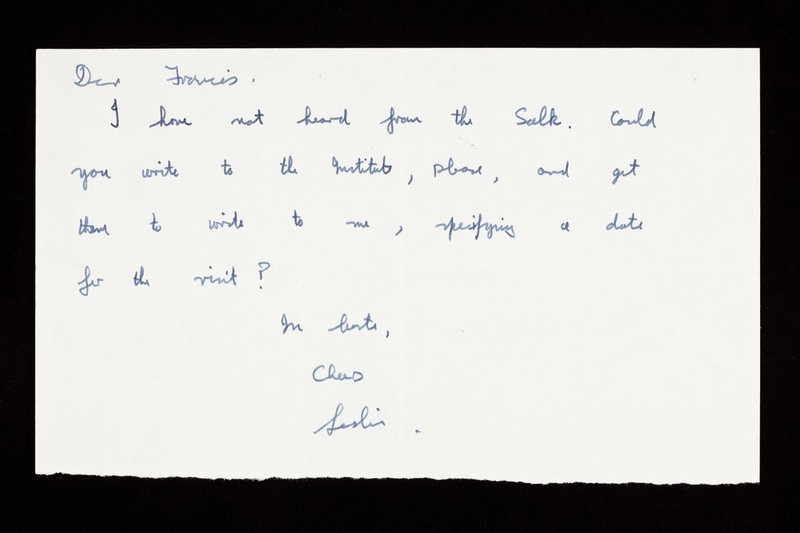 Dear Francis.
I have not heard from the Salk. Could
you write to the Institute, please, and get
them to write to me, specifying a date
for the visit?
In haste,
Cheers
Leslie.